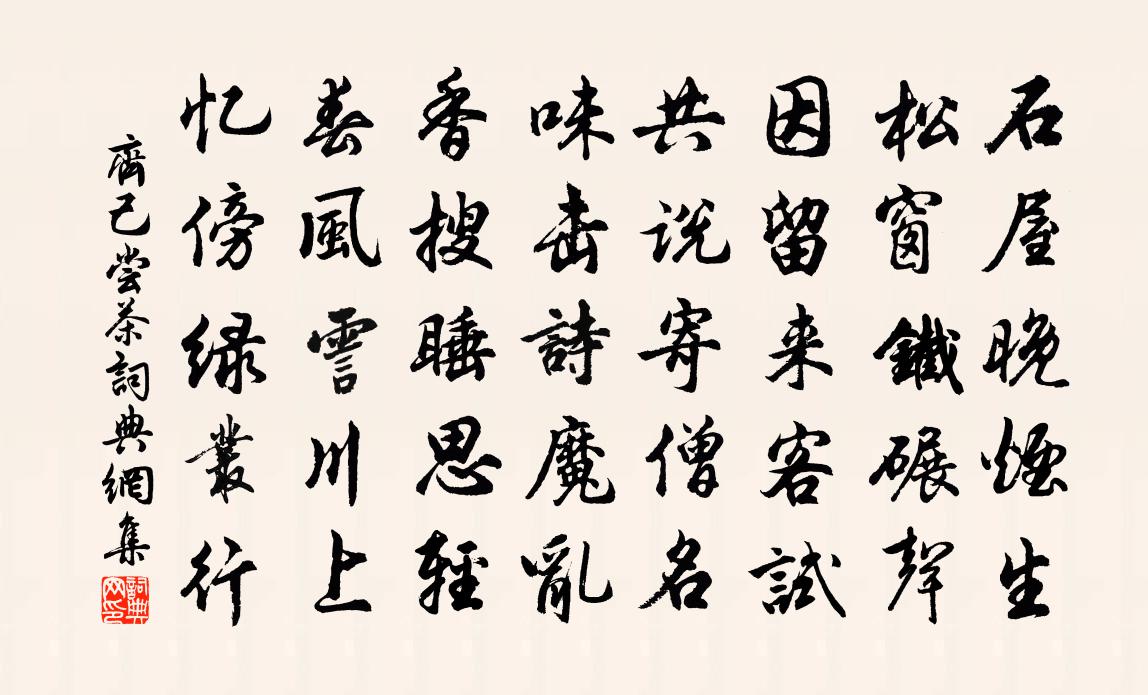 石屋晚煙生
松窗鐵碾聲
因留来客試
共说寄僧名
味击詩魔亂
香搜睡思輕
春風霅川上
忆傍绿叢行
齊己尝茶詞典網集
詞典网印